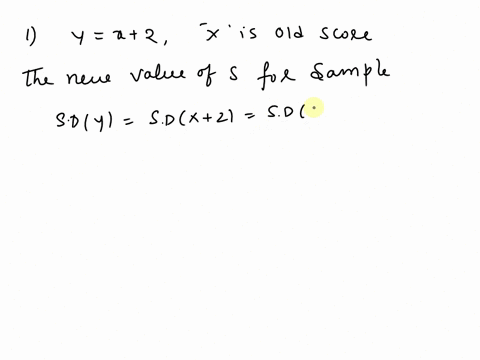 1) y = x + 2, "x" is old score
The neue value of s for sample
S.D(y) = S.D(x+2) = S.D(